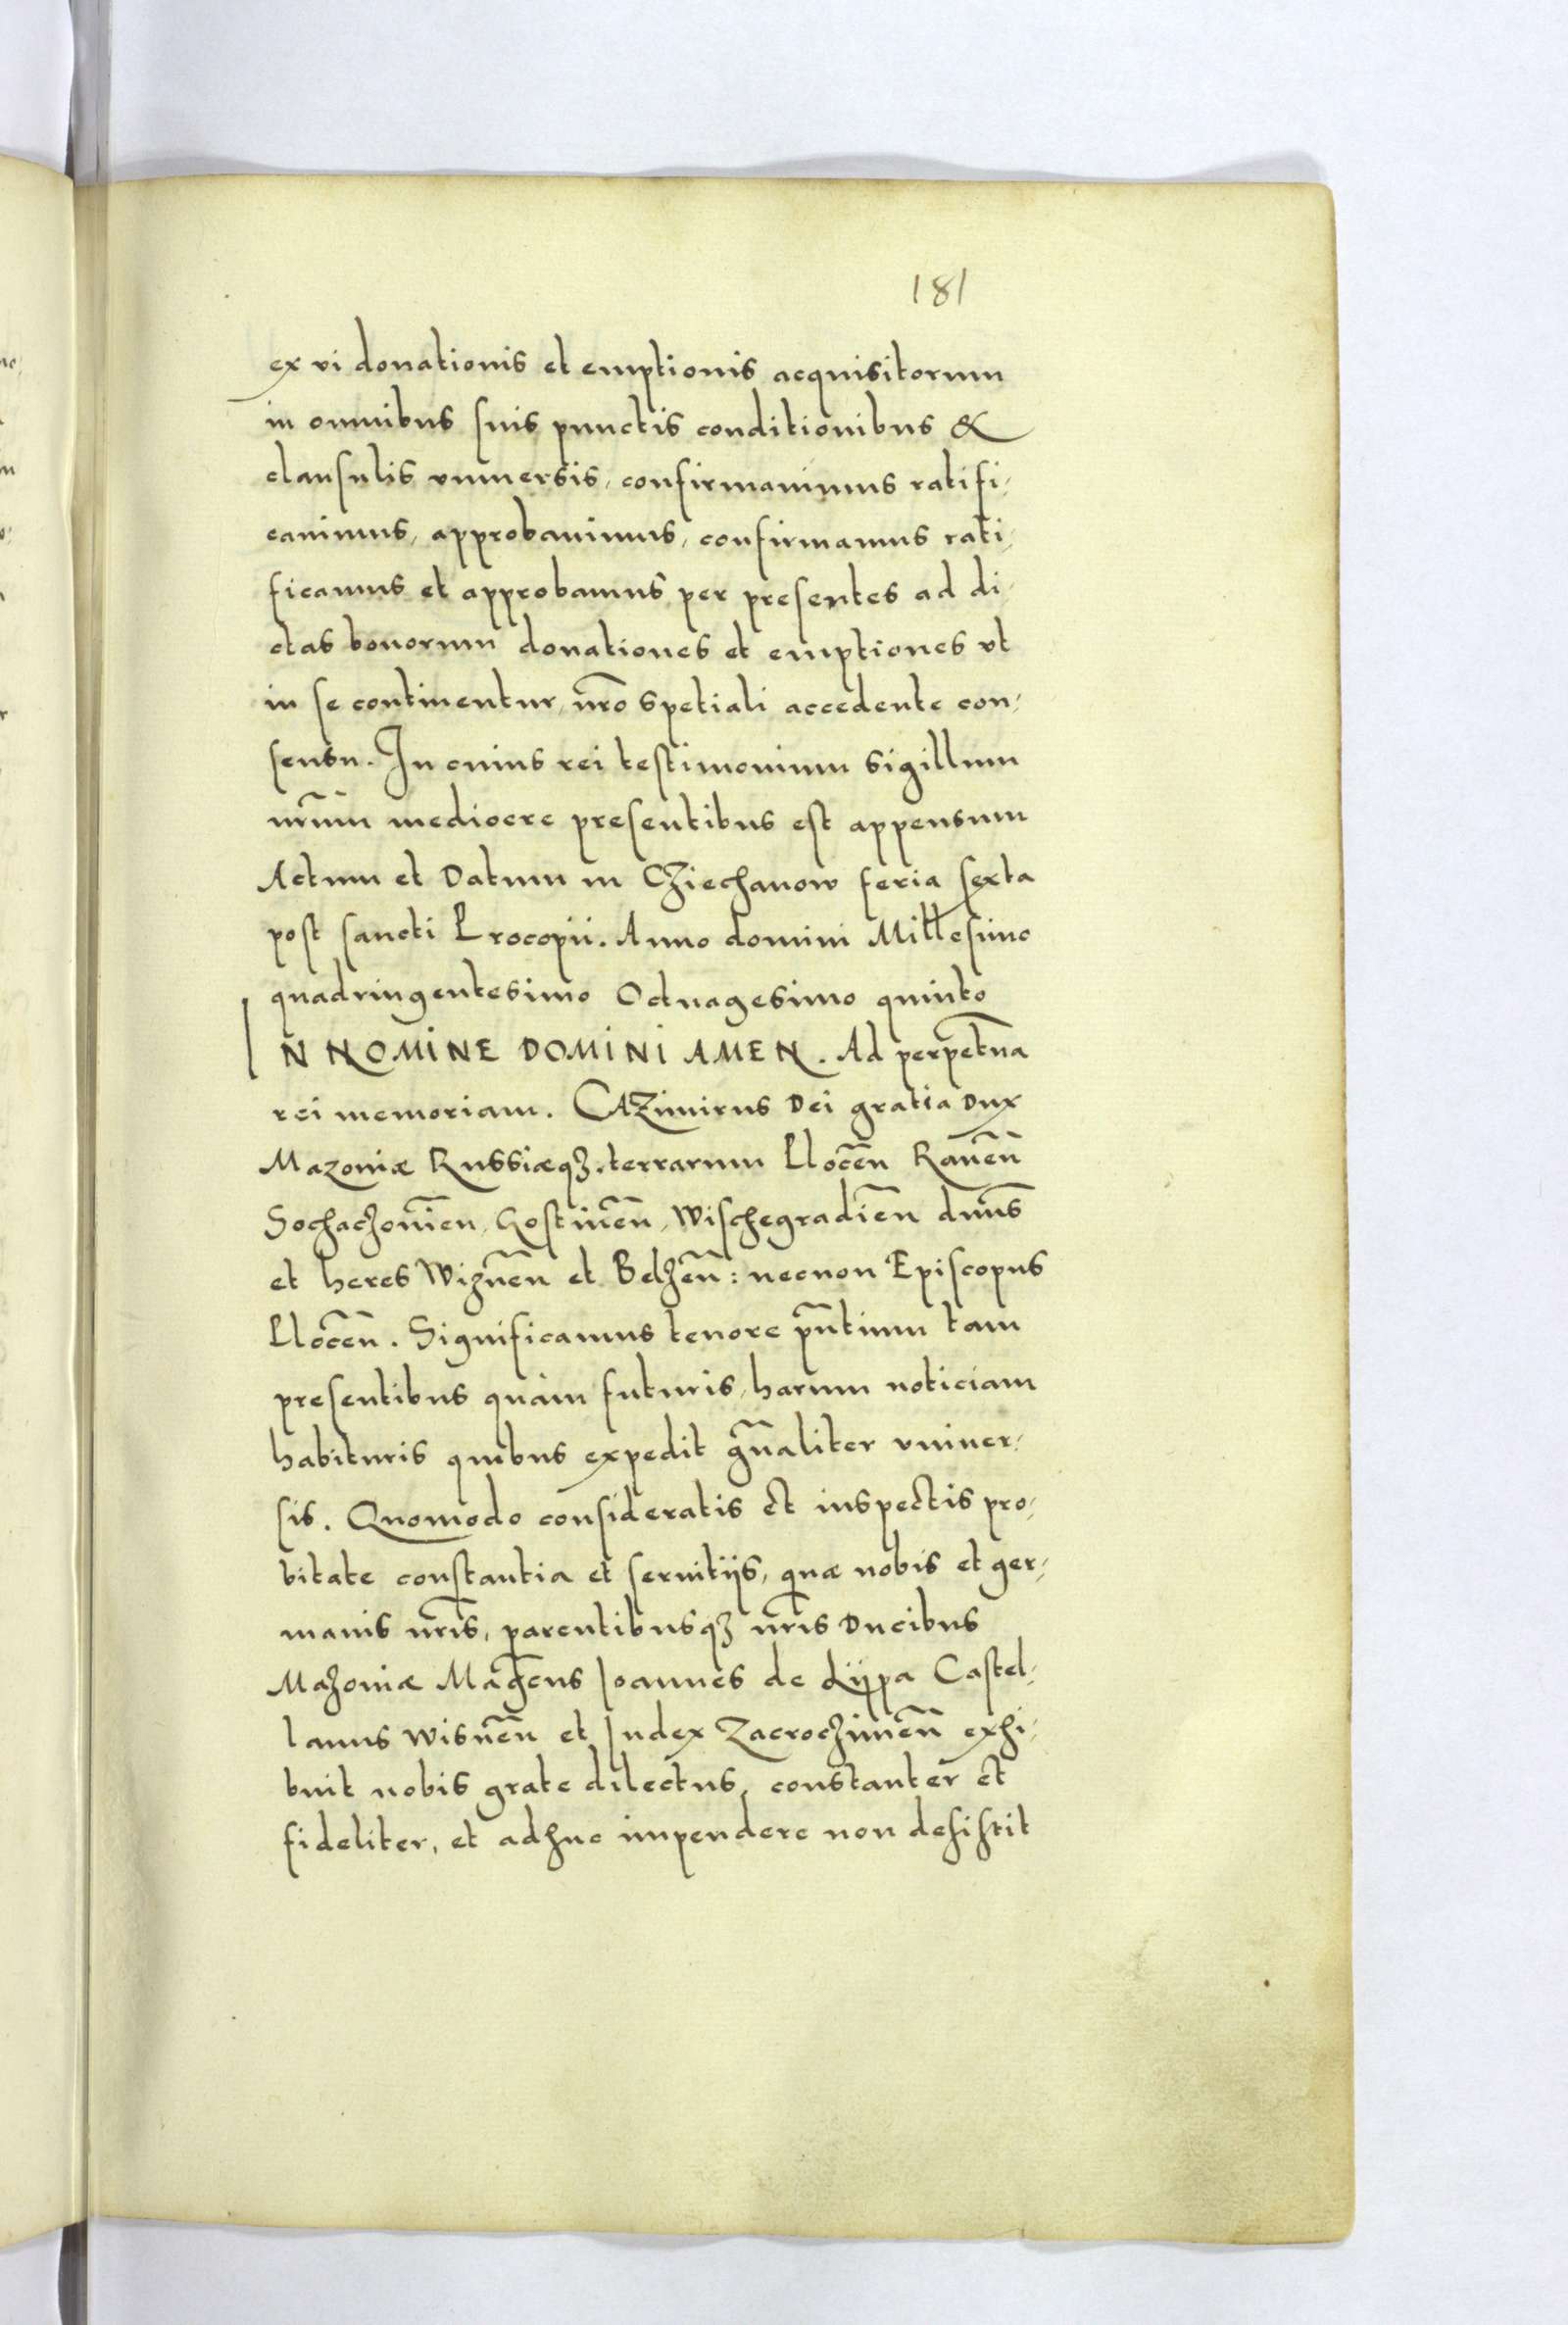 181
ex vi donationis et emptionis acquisitorum
in omnibus suis punctis conditionibus &
clausulis vniuersis, confirmauimus ratifi-
cauimus, approbauimus, confirmamus rati-
ficamus et approbamus per presentes ad di-
ctas bonorum donationes et emptiones vt
in se continentur, nr̃o spetiali accedente con-
sensu. In cuius rei testimonium sigillum
nr̃um mediocre presentibus est appensum
Actum et Datum in Cziechanow feria sexta
post sancti Procopii. Anno domini Millesimo
quadringentesimo Octuagesimo quinto
IN NOMINE DOMINI AMEN. Ad perpetuã
rei memoriam. CAZimirus Dei gratia Dux
Mazouiæ Russiæqȝ. terrarum Plocen̄ Rauen̄
Sochaczouien̄, Gostinen̄, Wischegradien̄ dnũs
et heres Wiznen̄ et Belzen̄: necnon Episcopus
Plocen̄. Significamus tenore pñtium tam
presentibus quàm futuris, harum noticiam
habituris quibus expedit gñaliter vniuer-
sis. Quomodo consideratis et inspectis pro-
bitate constantia et seruitijs, quæ nobis et ger-
manis nr̃is, parentibusqȝ nr̃is Ducibus
Mazouiæ Magc̃us Ioannes de Lijpa Castel-
lanus Wisnen̄ et Iudex Zacroczimen̄ exhi-
buit nobis grate dilectus, constanter et
fideliter, et adhuc impendere non desistit